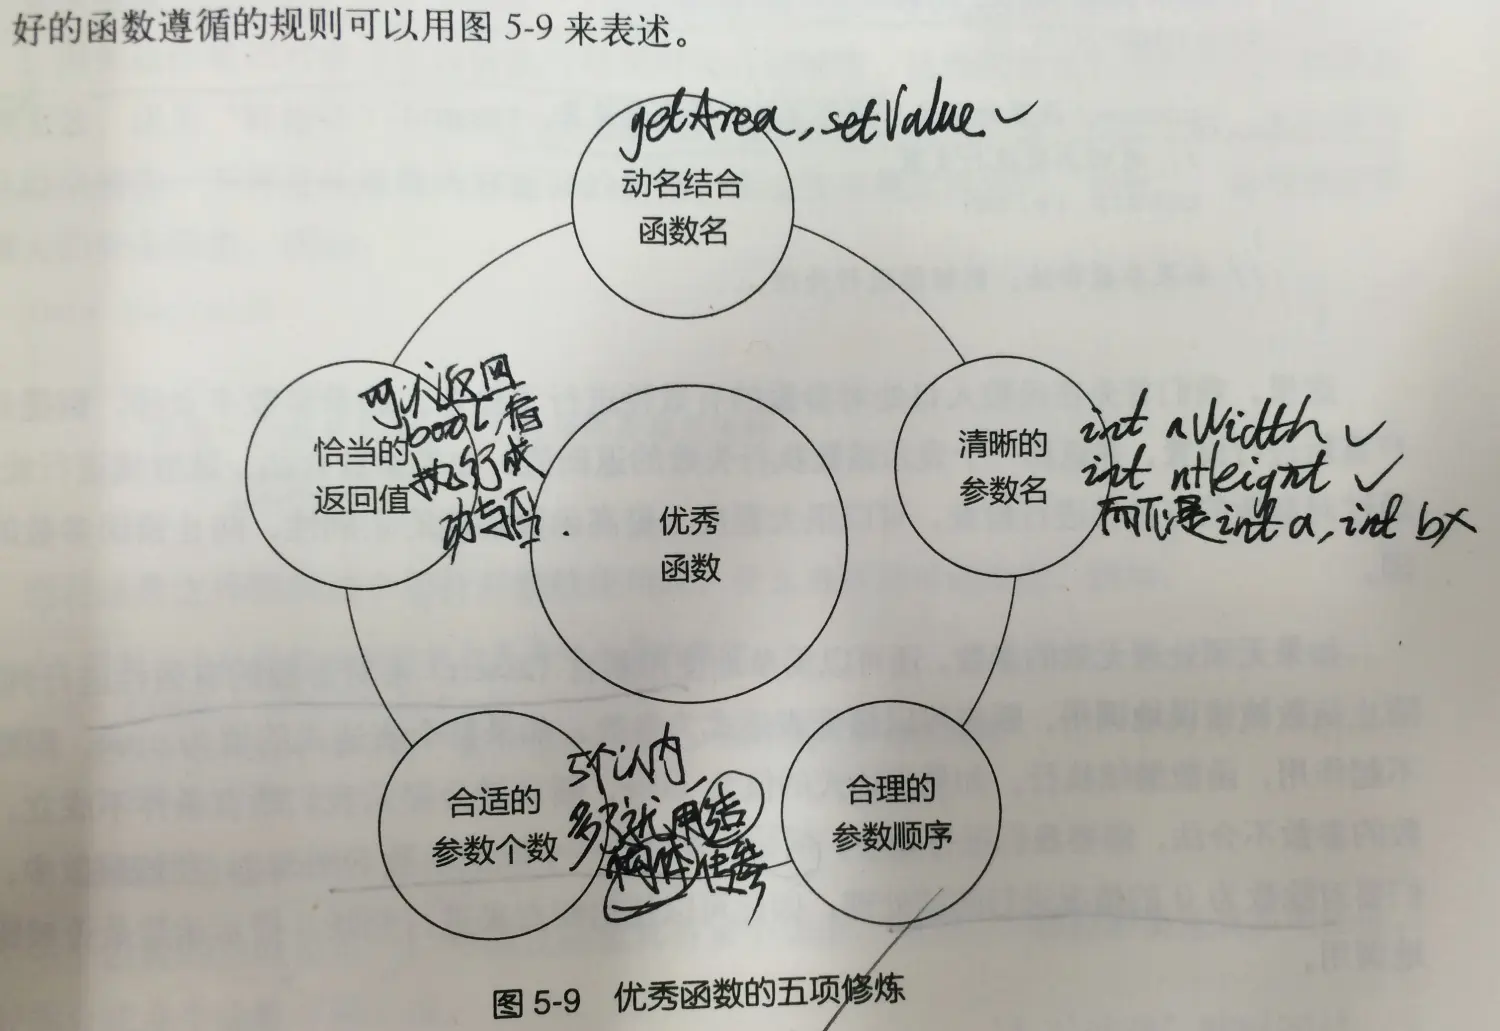 好的函数遵循的规则可以用图 5-9 来表述。
getArea, setValue ✓
动名结合
函数名
可以返回
bool,看
执行成
功与否.
恰当的
返回值
清晰的
参数名
int nWidth ✓
int nHeight ✓
而不是int a, int b×
优秀
函数
合适的
参数个数
5个以内,
多了就用结
构体传参
合理的
参数顺序
图 5-9 优秀函数的五项修炼